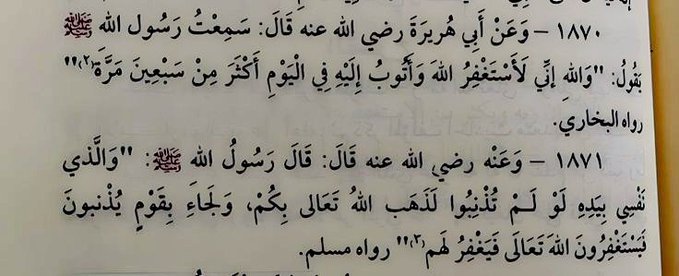 ١٨٧٠ – وَعَنْ أَبِي هُرِيرَةَ رضي الله عنه قَالَ: سَمِعْتُ رَسُول الله ﷺ
يَقُولُ: "وَاللهِ إنِّي لَأَسْتَغْفِرُ اللهَ وَأَتُوبُ إلَيْهِ فِي الْيَوْمِ أَكْثَرَ مِنْ سَبْعِينَ مَرَّةً(٢)"
رواه البخاري.
١٨٧١ – وَعَنْه رضي الله عنه قَالَ: قَالَ رَسُولُ الله ﷺ: "وَالَّذي
نَفْسِي بِيَدِهِ لَوْ لَـمْ تُذْنِبُوا لَذَهَب اللهُ تَعَالى بِكُمْ، وَلَجَاءَ بِقَوْمٍ يُذْنِبونَ
فَيَسْتَغْفِرُونَ اللهَ تَعَالَى فَيَغْفِرُ لَهم(٣)" رواه مسلم.